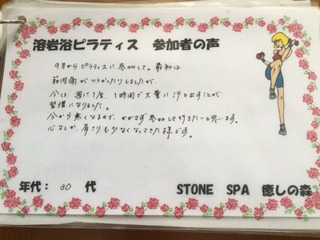 溶岩浴ピラティス 参加者の声
9月からピラティスに参加して。最初は
筋肉痛がひどかったりしましたが、
今は、週に1度、1時間で大量に汗を出すことが
習慣になりました。
今から寒くなるので、かかさず参加して行きたいと思います。
心なしか、肩こりも少なくなってきた様です。
年代： 30 代 STONE SPA 癒しの森